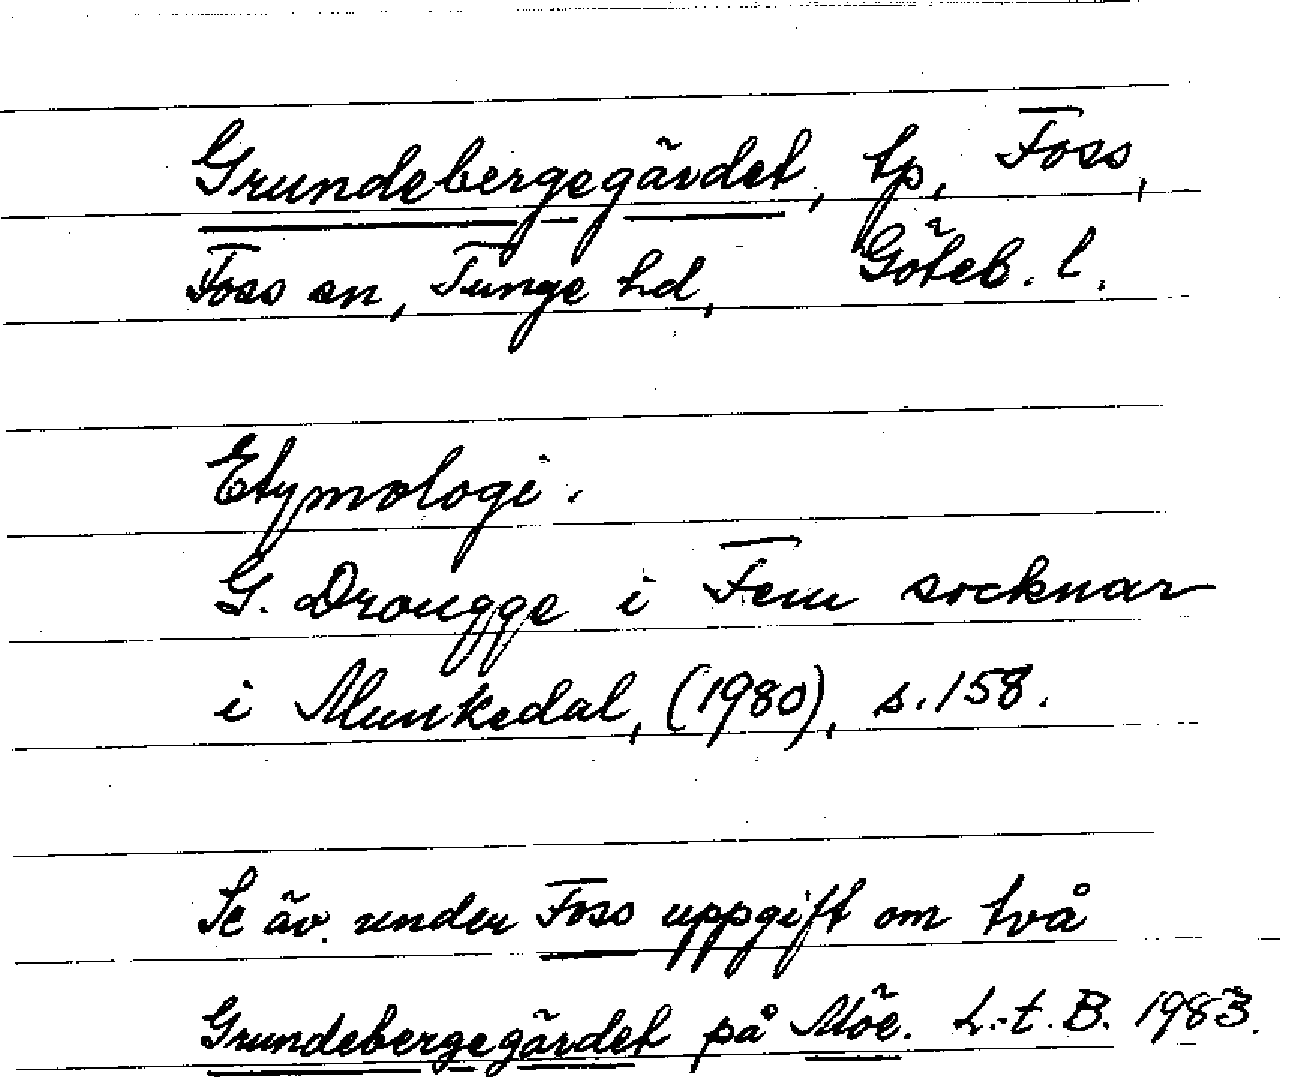 Grundebergegärdet, tp, Foss,
Foss sn, Tunge hd, Göteb. l.
Etymologi.
G. Drougge i Fem socknar
i Munkedal, (1980), s. 158.
Se äv. under Foss uppgift om två
Grundebergegärdet på Möe. L.t.B. 1983.